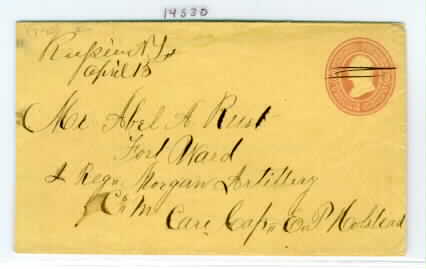 14330
April 13
Mr Abel A Rust
Fort Ward
2 Reg Morgan Artillery
Co M
Care Cap E P Holstead